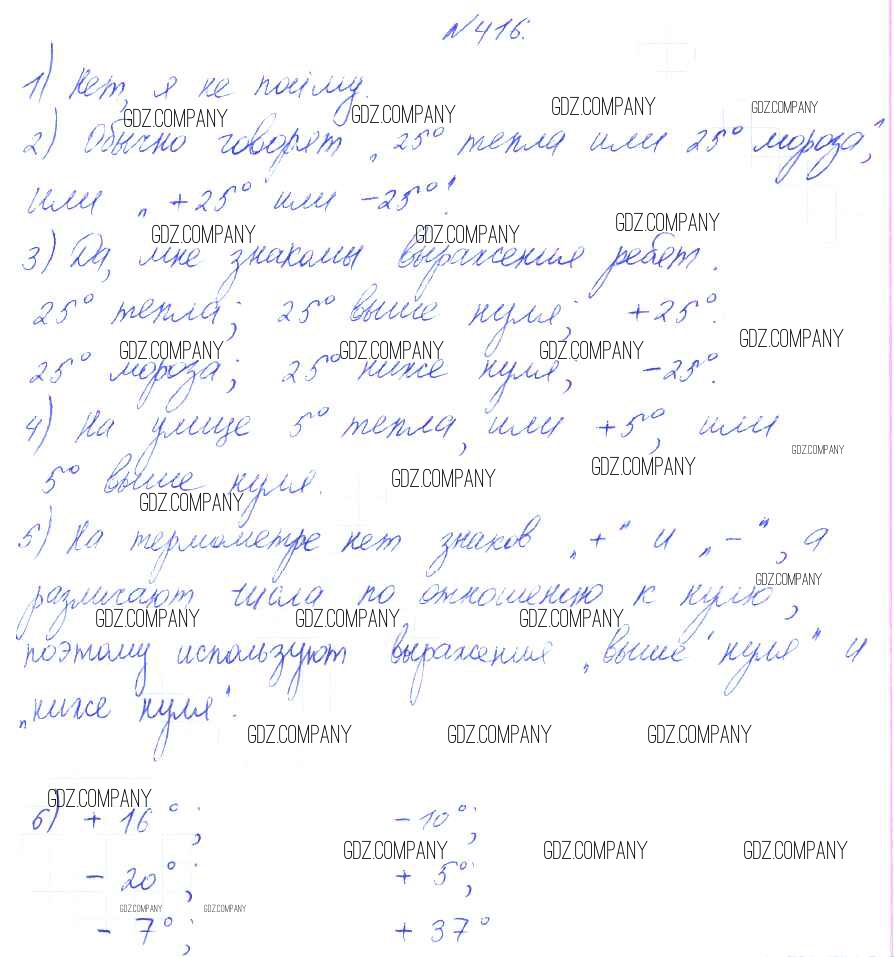 №416.
1) Нет, я не пойму.
GDZ.COMPANY GDZ.COMPANY GDZ.COMPANY GDZ.COMPANY
2) Обычно говорят „25° тепла или 25° мороза",
или „+25° или -25°".
GDZ.COMPANY GDZ.COMPANY GDZ.COMPANY
3) Да, мне знакомы выражения ребят.
25° тепла; 25° выше нуля; +25°.
GDZ.COMPANY GDZ.COMPANY GDZ.COMPANY GDZ.COMPANY
25° мороза; 25° ниже нуля; -25°.
4) На улице 5° тепла, или +5°, или
GDZ.COMPANY
5° выше нуля.
GDZ.COMPANY GDZ.COMPANY GDZ.COMPANY
5) На термометре нет знаков „+" и „-", а
GDZ.COMPANY
различают числа по отношению к нулю,
GDZ.COMPANY GDZ.COMPANY GDZ.COMPANY
поэтому используют выражения „выше нуля" и
„ниже нуля".
GDZ.COMPANY GDZ.COMPANY GDZ.COMPANY
GDZ.COMPANY
6) + 16°; -10°;
GDZ.COMPANY GDZ.COMPANY GDZ.COMPANY
- 20°; + 5°;
GDZ.COMPANY GDZ.COMPANY
- 7°; + 37°